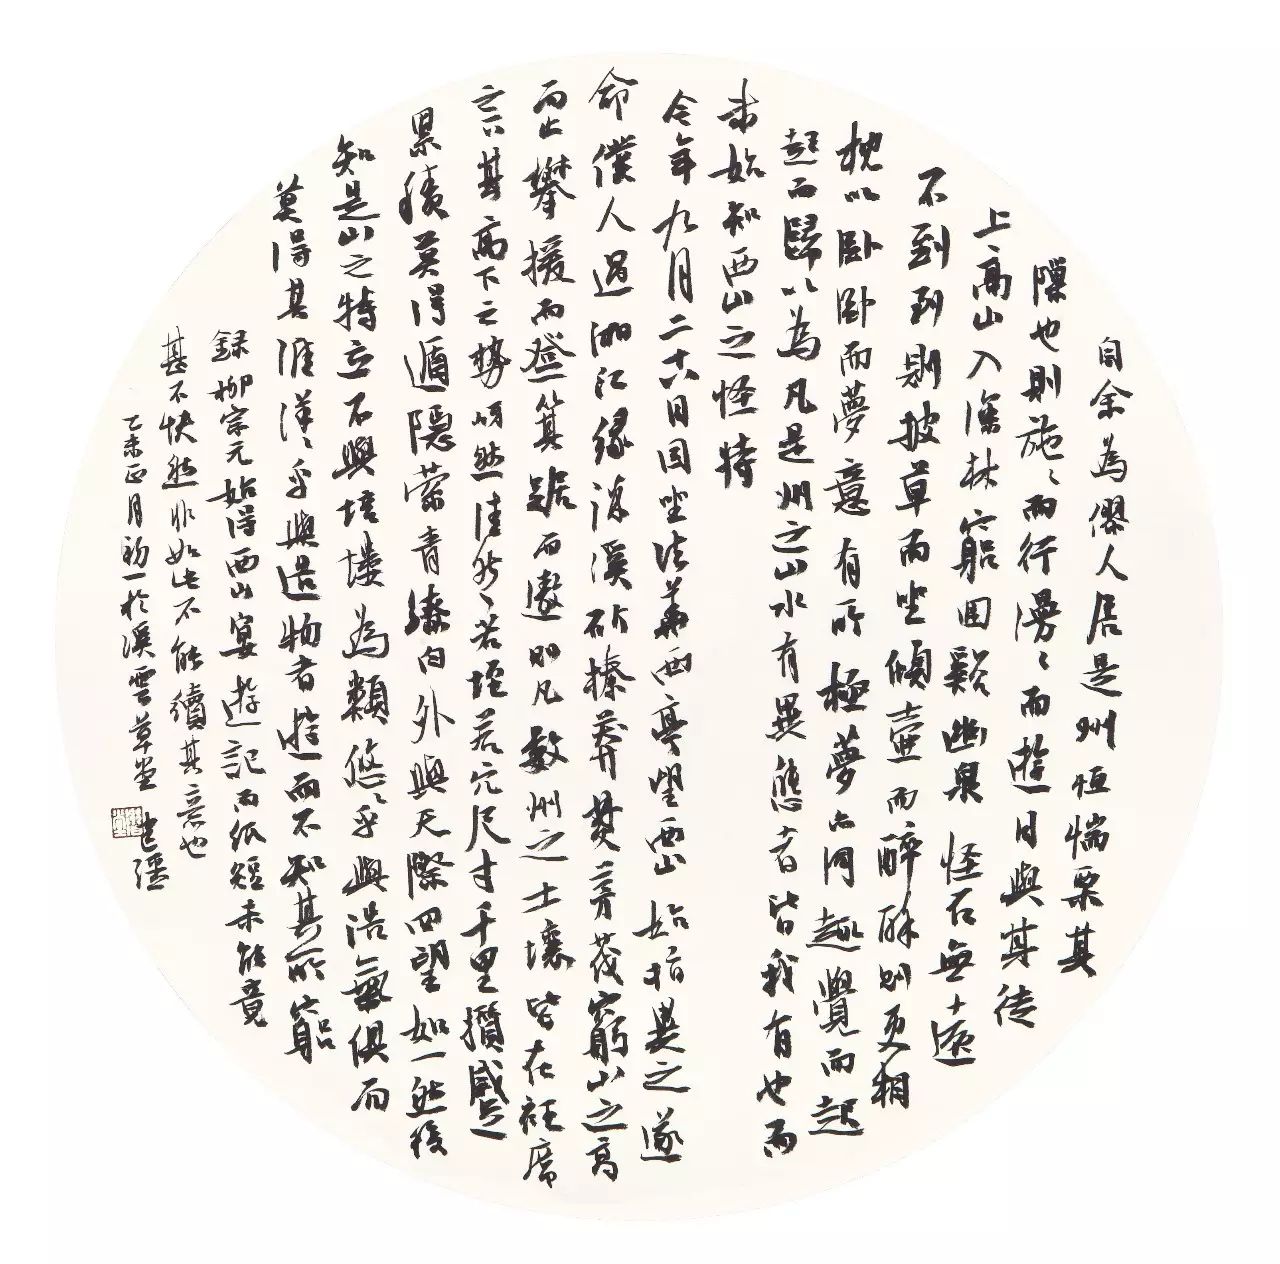 自余為僇人居是州恒惴栗其
隟也則施〻而行漫〻而遊日與其徒
上高山入深林窮回谿幽泉怪石無上遠
不到到則披草而坐傾壺而醉醉則更相
枕以卧卧而夢意有所極夢亦同趣覺而起
起而歸以為凡是州之山水有異態者皆我有也而
未始知西山之怪特
今年九月二十八日因坐法華西亭望西山始指異之遂
命僕人過湘江緣染溪斫榛莽焚茅茷窮山之高
而止攀援而登箕踞而遨則凡數州之土壤皆在衽席
之下其高下之勢岈然洼然〻若垤若穴尺寸千里攢蹙
累積莫得遁隱縈青繚白外與天際四望如一然後
知是山之特立不與培塿為類悠〻乎與浩氣俱而
莫得其涯洋〻乎與造物者遊而不知其所窮
錄柳宗元始得西山宴遊記而紙短未能竟
甚不快然非如此不能續其意也
乙未正月初一於溪雲草堂